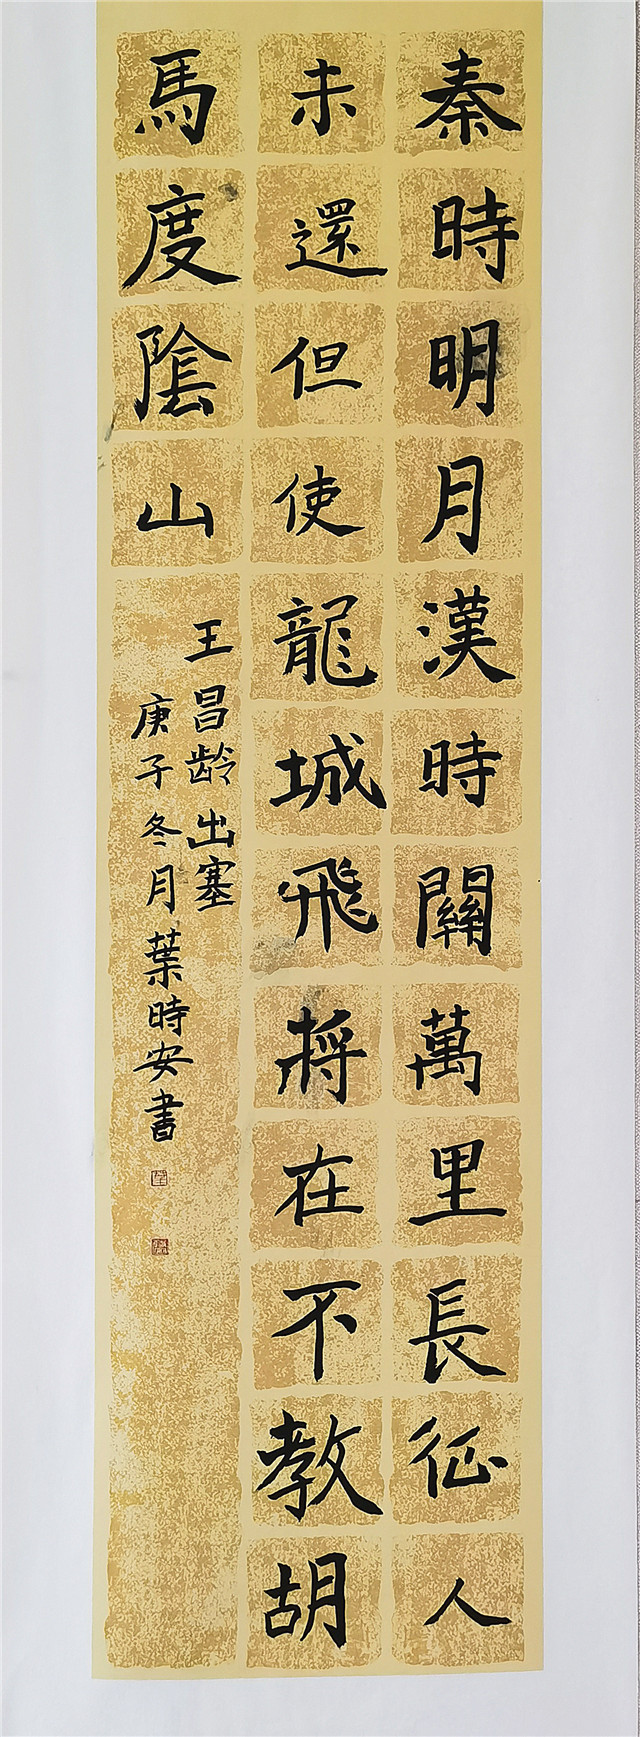 秦時明月漢時關萬里長征人
未還但使龍城飛將在不教胡
馬度陰山
王昌龄出塞
庚子冬月葉時安書